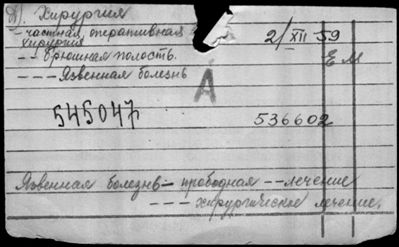 А). Хирургия
- частная, оперативная
хирургия
2/XII 59
- - - Брюшная полость.
ЕМ
- - - - Язвенная болезнь
А
545047
536602
Язвенная болезнь - прободная - - лечение
- - - хирургическое лечение.